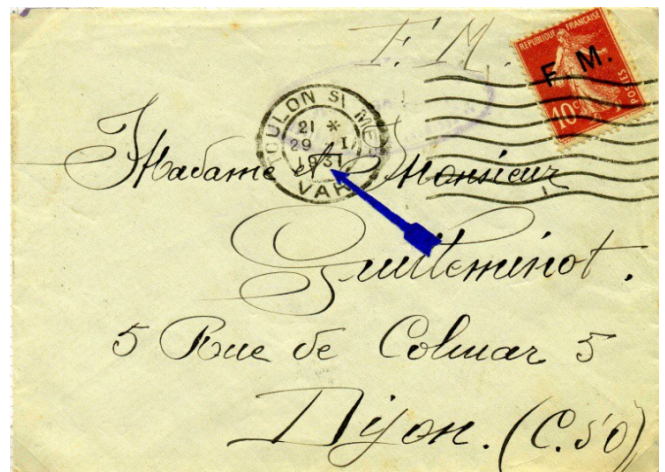 F. M.
REPUBLIQUE FRANÇAISE
POSTES
F. M.
10c
TOULON S/ MER
21 *
29 - I
1931
VAR
Madame et Monsieur
Guilleminot.
5 Rue de Colmar 5
Dijon. (C. d'O)